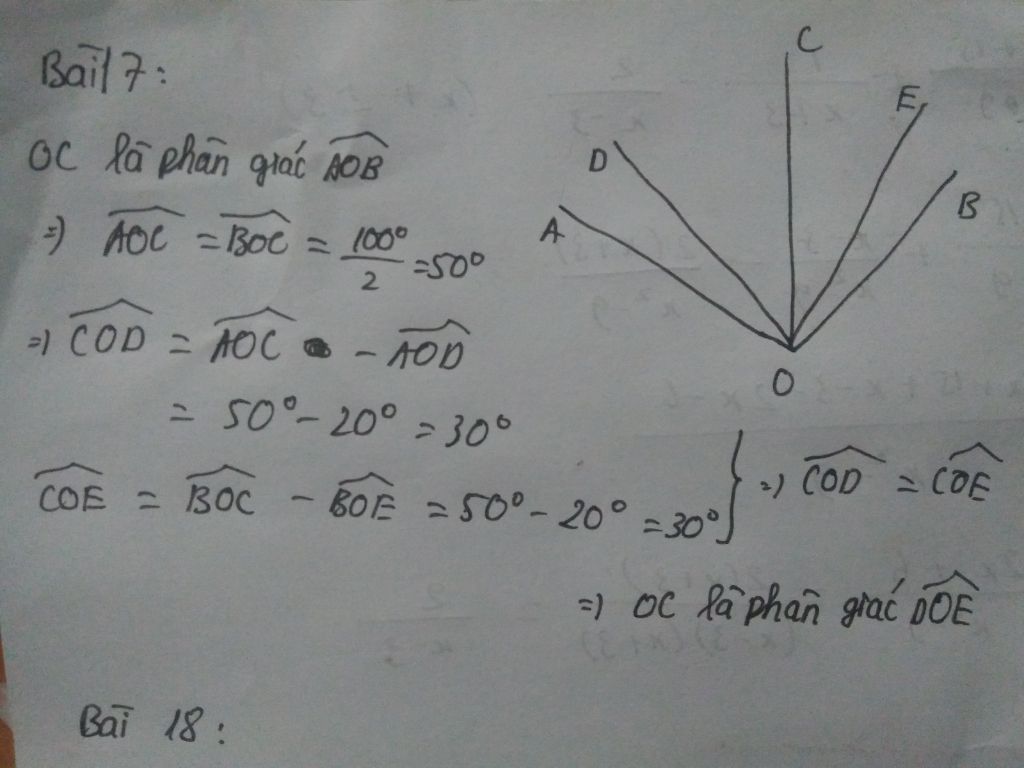 Bài 17:
OC là phân giác AOB
=> AOC = BOC = 100°/2 = 50°
=> COD = AOC - AOD
= 50° - 20° = 30°
COE = BOC - BOE = 50° - 20° = 30° } => COD = COE
=> OC là phân giác DOE
Bài 18:
C
E
D
B
A
O